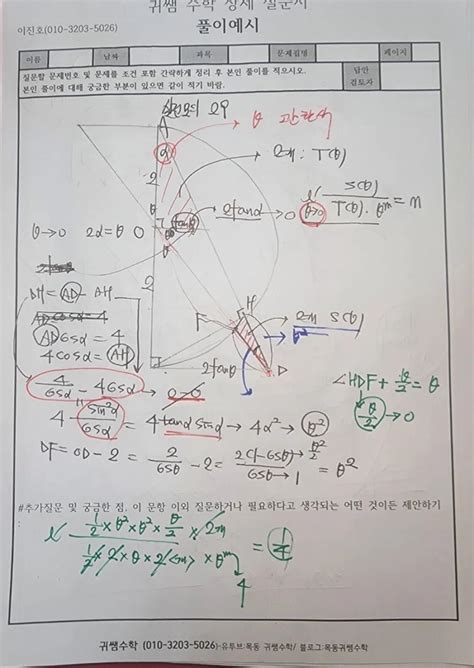 귀쌤 수학 상세 질문지
이진호(010-3203-5026)
풀이예시
이름 날짜 과목 문제집명 페이지
질문할 문제번호 및 문제를 조건 포함 간략하게 정리 후 본인 풀이를 적으시오.
본인 풀이에 대해 궁금한 부분이 있으면 같이 적기 바람.
답안
검토자
A
α
θ 관찰
2 2개 : T(θ)
S(θ)
θ→0 T(θ)·θᵐ = n
θ→0 2α=θ 0
2tanα → 0
2
DH = AD - AH
H
F 2개 S(θ)
AD cosα = 4
4cosα = AH
2tanθ D
∠HDF + θ/2 = θ
θ/2 → 0
4/cosα - 4cosα → 0-0
4 · sin²α/cosα = 4tanα sinα → 4α² → θ²
DF = OD - 2 = 2/cosθ - 2 = 2(1-cosθ)/cosθ → θ²/2 → 1 = θ²
#추가질문 및 궁금한 점, 이 문항 이외 질문하거나 필요하다고 생각되는 어떤 것이든 제안하기
1/2 × θ² × θ² × θ/2 × 2개
1/2 × 2 × θ × 2 × θᵐ = 1/4
4
귀쌤수학 (010-3203-5026)-유투브:목동 귀쌤수학/ 블로그:목동귀쌤수학